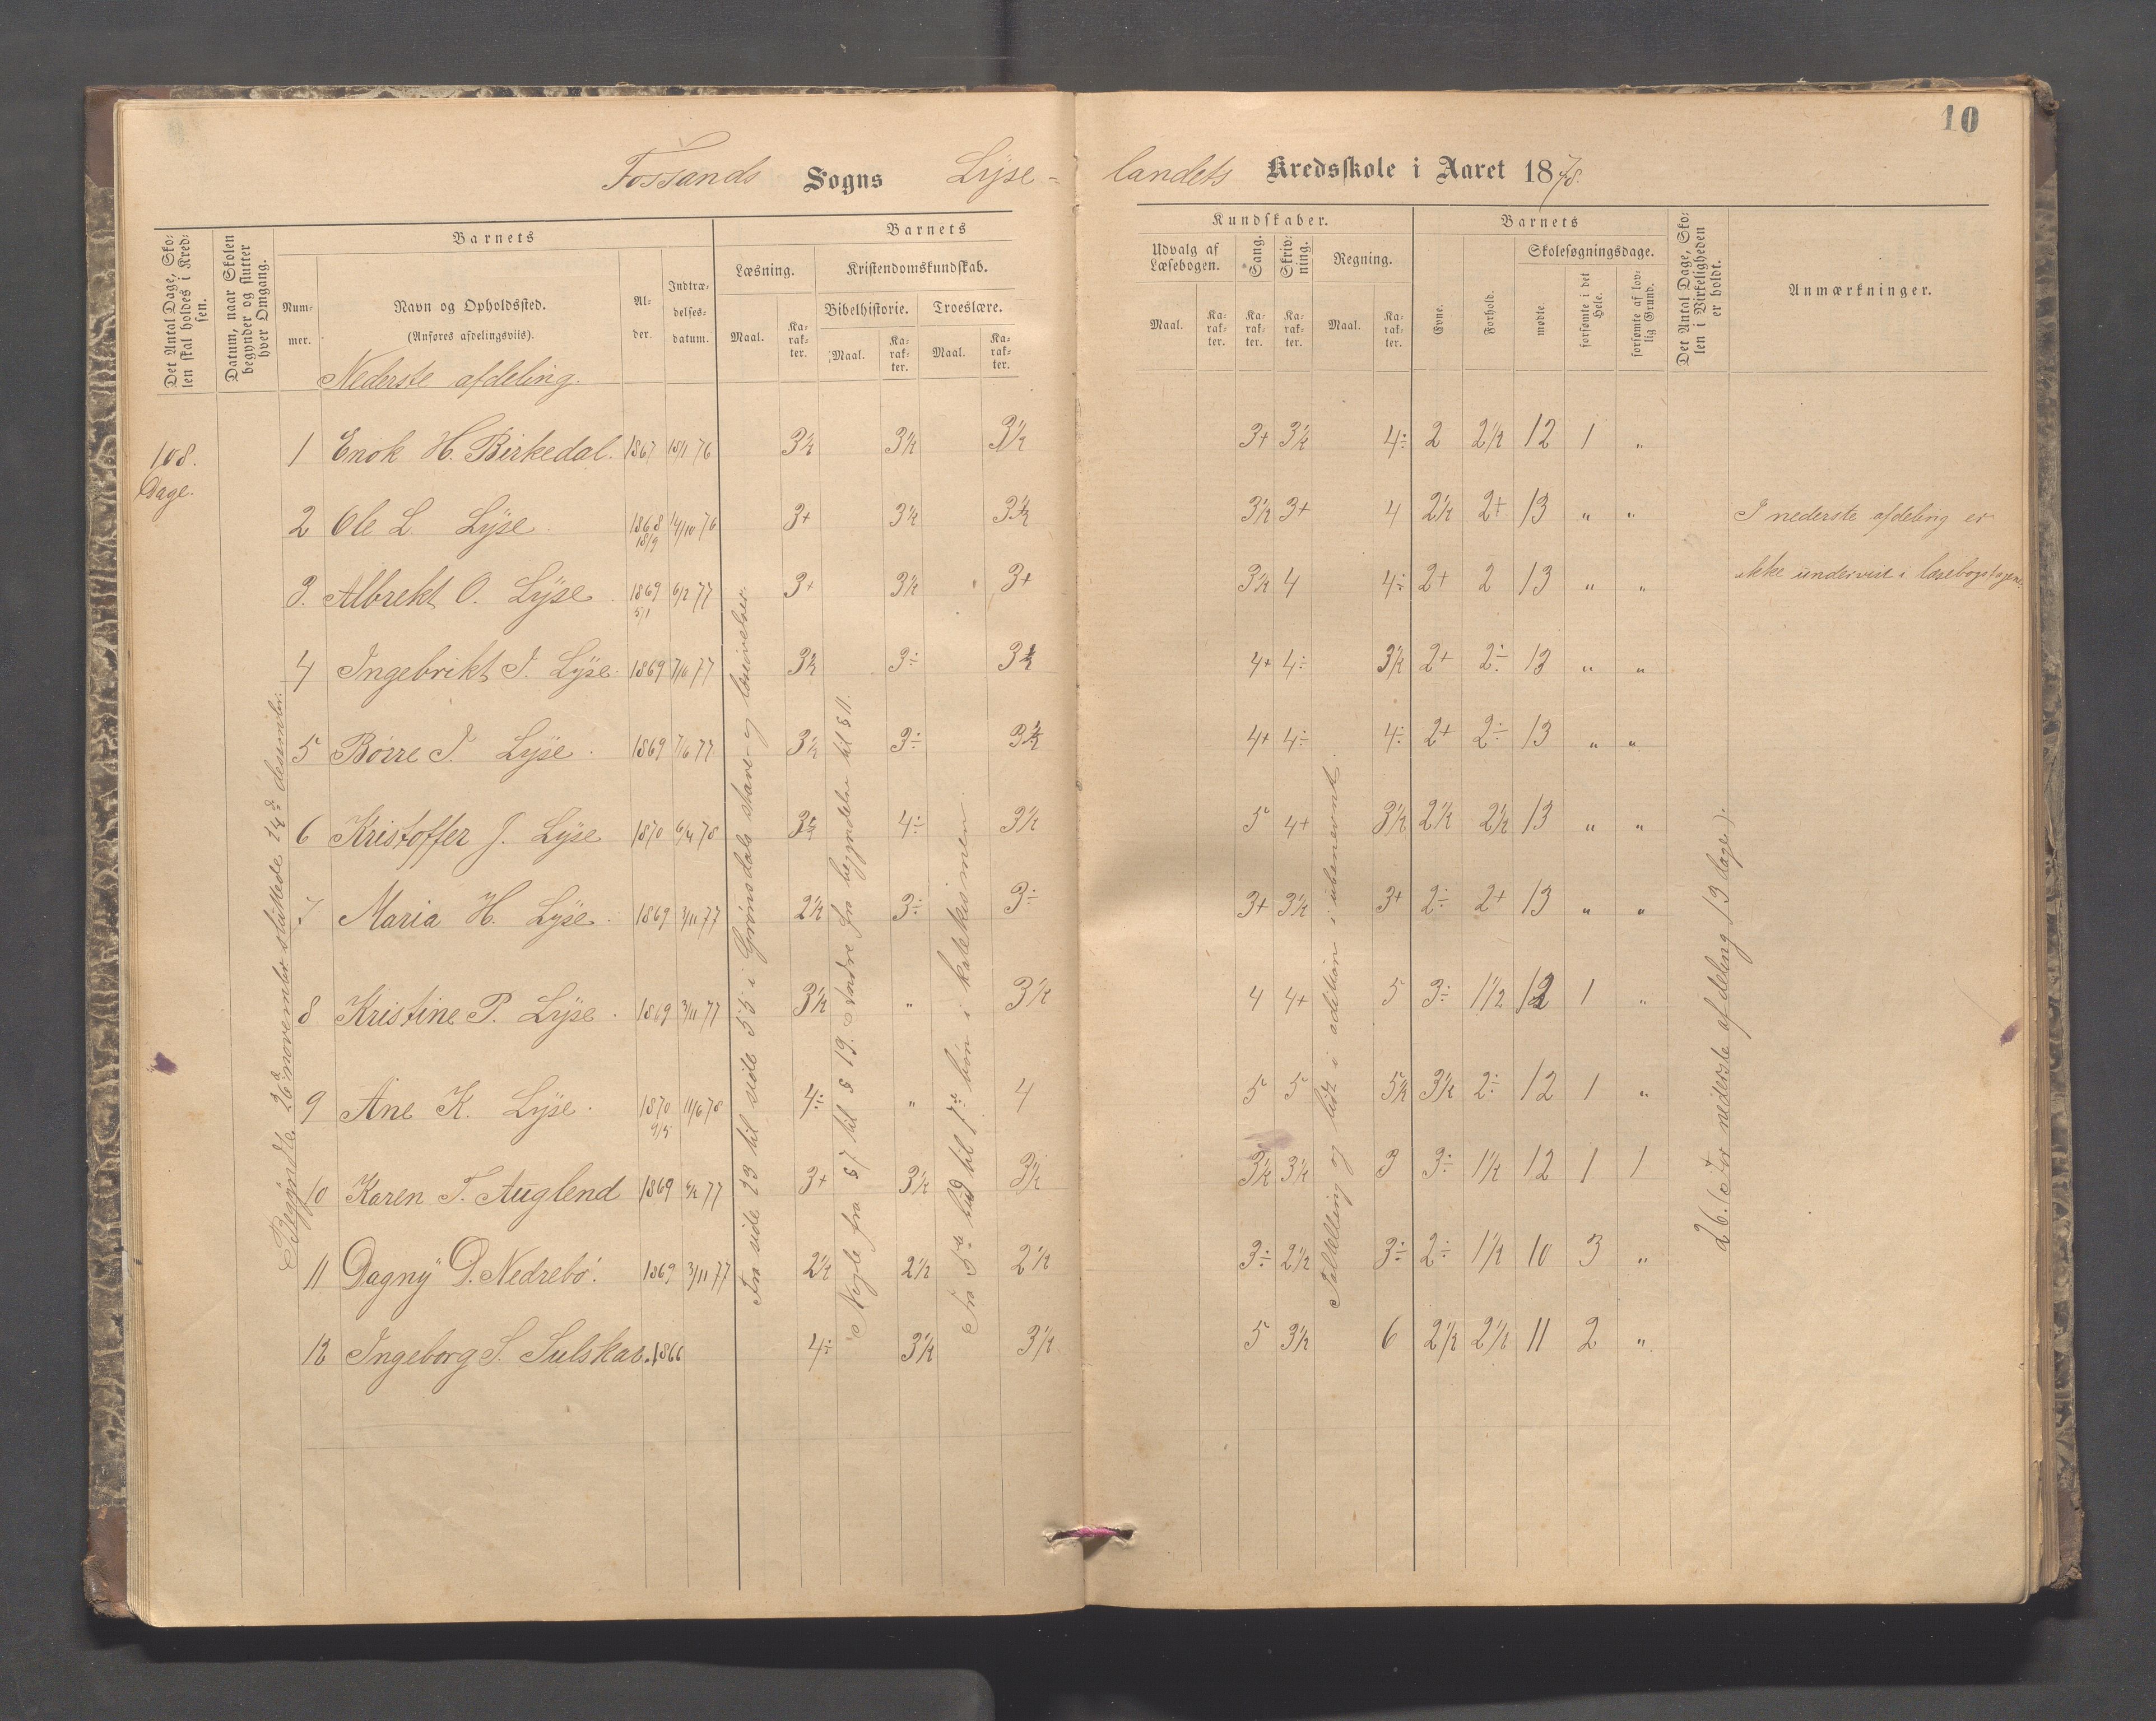 10
Fossands Sogns Lyse-
landets Kredsskole i Aaret 1878.
Det Antal Dage, Skolen skal holdes i Kredsen.
Datum, naar Skolen begynder og slutter hver Omgang.
Barnets
Nummer.
Navn og Opholdssted.
(Anføres afdelingsviis).
Alder.
Indtrædelsesdatum.
Barnets
Læsning.
Maal.
Karakter.
Kristendomskundskab.
Bibelhistorie.
Maal.
Karakter.
Troeslære.
Maal.
Karakter.
Kundskaber.
Udvalg af Læsebogen.
Maal.
Karakter.
Sang.
Karakter.
Skrivning.
Karakter.
Regning.
Maal.
Karakter.
Barnets
Evne.
Forhold.
Skolesøgningsdage.
mødte.
forsømte i det Hele.
forsømte af lovlig Grund.
Det Antal Dage, Skolen i Virkeligheden er holdt.
Anmærkninger.
Nederste afdeling.
108. Dage.
1 Enok H. Birkedal. 1867 18/11 76 3½ 3½ 3½ 3+ 3½ 4÷ 2 2½ 12 1 "
2 Ole L. Lÿse 1868 18/9 14/10 76 3+ 3½ 3½ 3½ 3+ 4 2½ 2+ 13 " "
3. Albrekt O. Lÿse 1869 5/1 6/2 77 3+ 3½ 3+ 3½ 4 4÷ 2+ 2 13 " "
4 Ingebrikt I. Lÿse 1869 7/6 77 3½ 3÷ 3½ 4+ 4÷ 3½ 2+ 2÷ 13 " "
5 Børre I. Lÿse 1869 7/6 77 3½ 3÷ 3½ 4+ 4÷ 4÷ 2+ 2÷ 13 " "
6 Kristoffer J. Lÿse 1870 6/4 78 4÷ 3½ 5 4+ 3½ 2½ 2½ 13 " "
7 Maria H. Lÿse 1869 3/11 77 2½ 3÷ 3÷ 3+ 3½ 3+ 2÷ 2+ 13 " "
8 Kristine P. Lÿse 1869 3/11 77 3½ " 3½ 4 4+ 5 3÷ 1½ 12 1 "
9 Ane K. Lÿse 1870 9/5 11/6 78 4÷ " 4 5 5 5½ 3½ 2÷ 12 1 "
10 Karen T. Auglend 1869 77 3+ 3½ 3½ 3½ 3½ 3 3÷ 1½ 12 1 1
11 Dagnÿ D. Nedrebø. 1869 3/11 77 2½ 2½ 2½ 3÷ 2½ 3÷ 2÷ 1½ 10 3 "
12 Ingeborg S. Sulskar. 1866 4÷ 3½ 3½ 5 3½ 6 2½ 2½ 11 2 "
Begÿndte 26de november sluttede 14de desember.
Fra side 23 til side 55 i Grønsdals stave- og læseøvelser.
Nogle fra § 7 til § 19. Andre fra begyndelse til § 11.
Fra 5te bud til 1ste bøn i katekismen.
Taltælling og lidt i adition i ubenevnt.
26. (For nederste afdeling 13 dage).
I nederste afdeling er
ikke undervist i læsebogstagene.